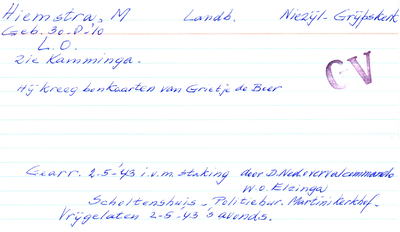 Hiemstra, M Landb. Niezijl-Grijpskerk
Geb. 30-8-'10
L.O.
Zie Kamminga.
CV
Hij kreeg bonkaarten van Grietje de Boer
Gearr. 2-5-'43 i.v.m. staking door D. Ned. overvalcommando
W.O. Elzinga
Scholtenshuis - Politiebur. Martinikerkhof-
Vrijgelaten 2-5-43 's avonds.